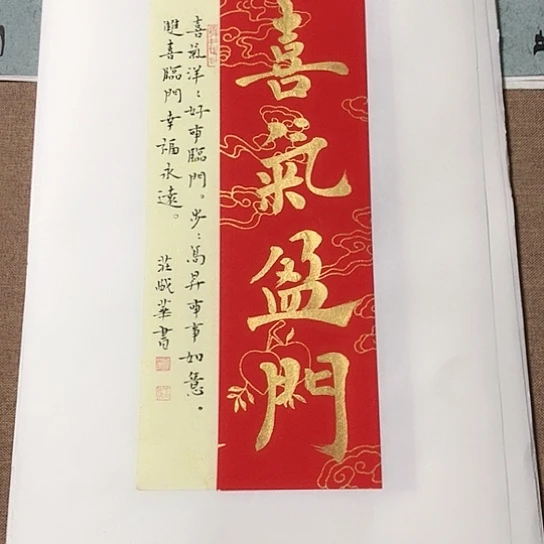 喜氣盈門
喜氣洋：好事臨門。步：高昇事事如意。
雙喜臨門幸福永遠。
莊成華書